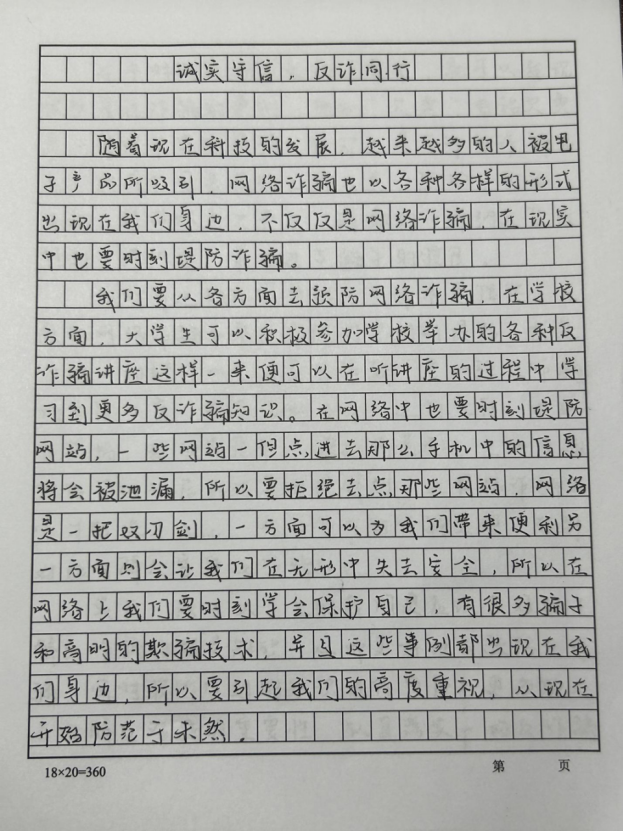 诚实守信，反诈同行
随着现在科技的发展，越来越多的人被电
子产品所吸引，网络诈骗也以各种各样的形式
出现在我们身边，不仅仅是网络诈骗，在现实
中也要时刻堤防诈骗。
我们要从各方面去预防网络诈骗，在学校
方面，大学生可以积极参加学校举办的各种反
诈骗讲座这样一来便可以在听讲座的过程中学
习到更多反诈骗知识。在网络中也要时刻堤防
网站，一些网站一但点进去那么手机中的信息
将会被泄漏，所以要拒绝去点那些网站，网络
是一把双刃剑，一方面可以为我们带来便利另
一方面则会让我们在无形中失去安全，所以在
网络上我们要时刻学会保护自己，有很多骗子
和高明的欺骗技术，并且这些事例都出现在我
们身边，所以要引起我们的高度重视，从现在
开始防范于未然。
18×20=360
第 页